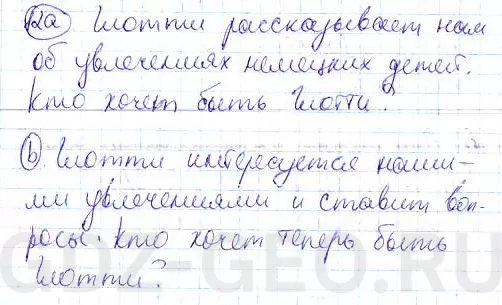 12a Шотти рассказывает нам
об увлечениях немецких детей.
Кто хочет быть Шотти?
b Шотти интересуется наши-
ми увлечениями и ставит воп-
росы. Кто хочет теперь быть
Шотти?
GDZ-GEO.RU